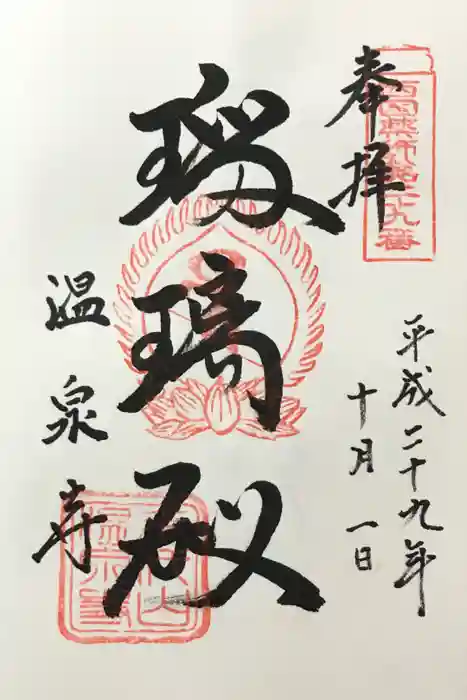 奉拝
平成二十九年
十月一日
瑠璃殿
温泉寺